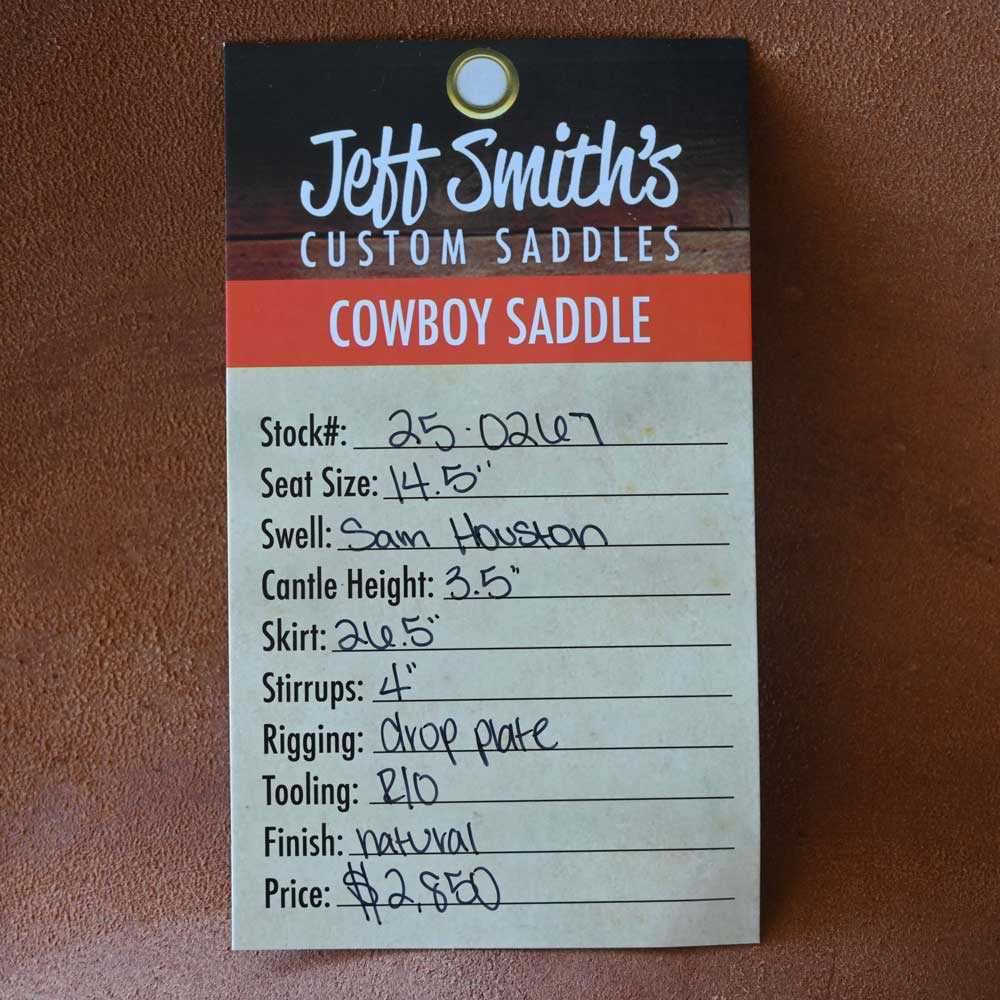 Jeff Smith's
CUSTOM SADDLES
COWBOY SADDLE
Stock#: 25-0267
Seat Size: 14.5"
Swell: Sam Houston
Cantle Height: 3.5"
Skirt: 26.5"
Stirrups: 4"
Rigging: drop plate
Tooling: R/O
Finish: natural
Price: $2,850